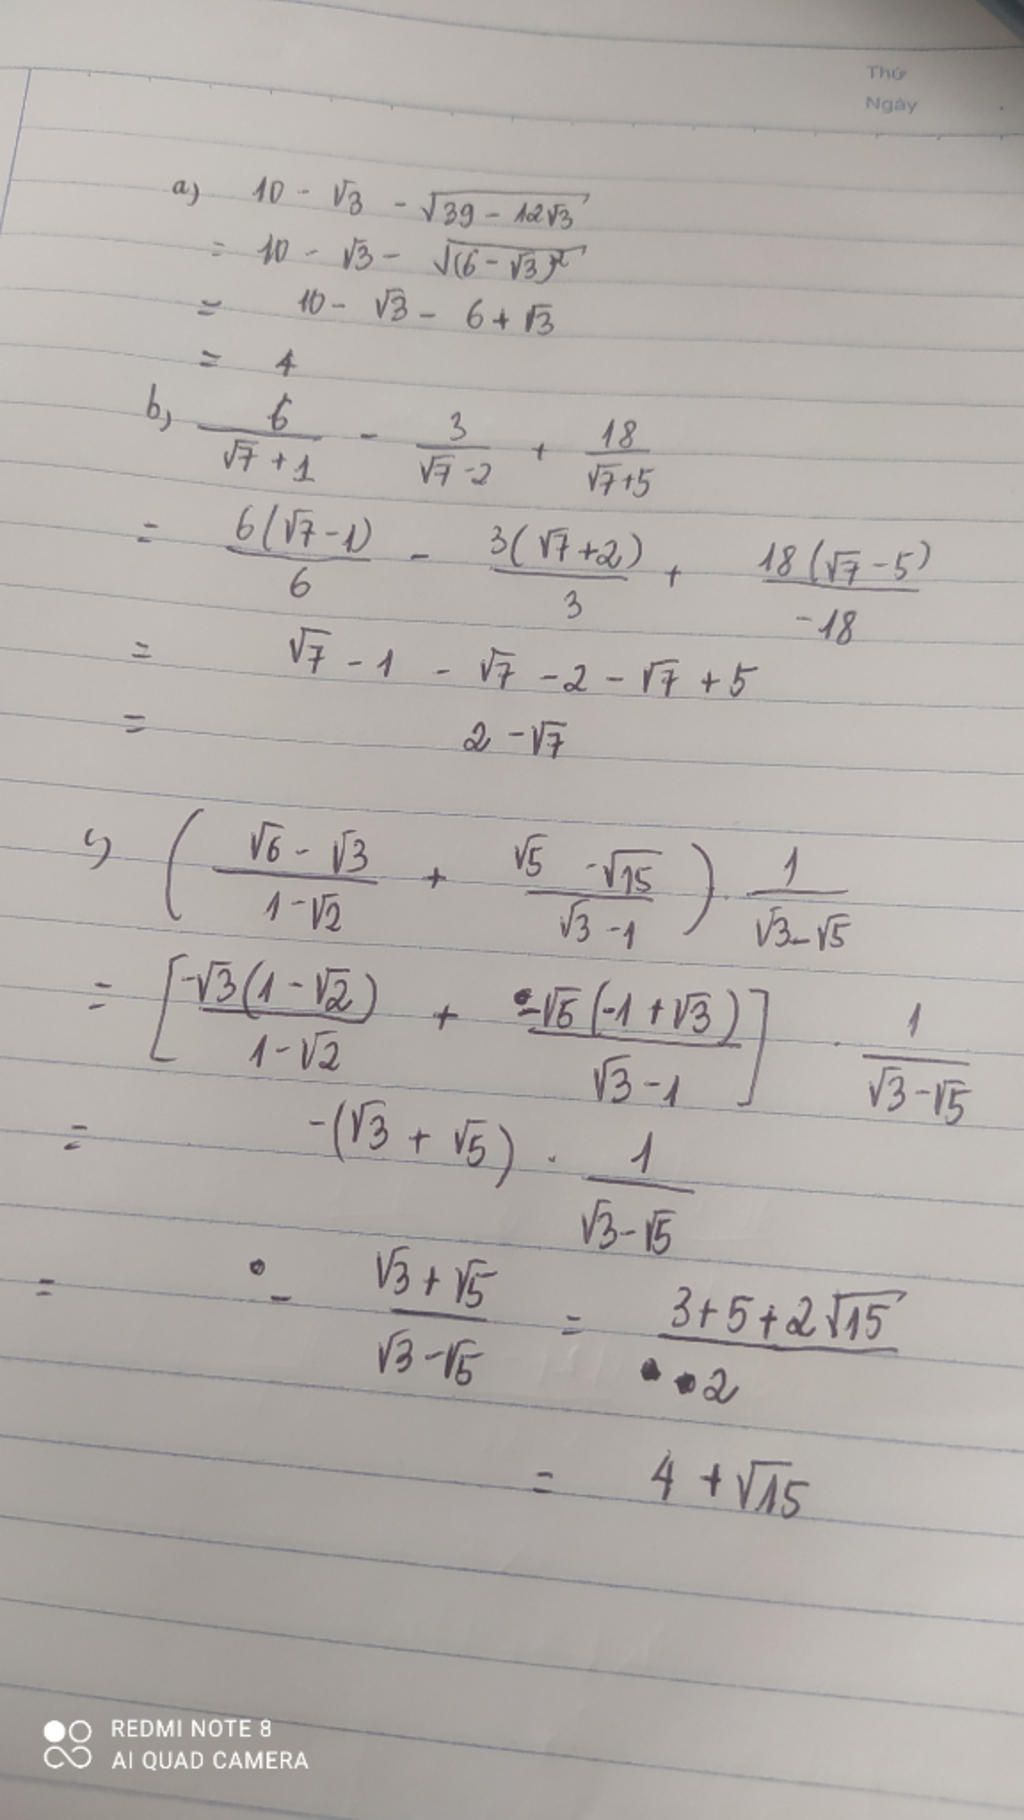 Thứ
Ngày
a) 10 - √3 - √(39 - 12√3)
= 10 - √3 - √((6 - √3)²)
= 10 - √3 - 6 + √3
= 4
b) 6/(√7 + 1) - 3/(√7 - 2) + 18/(√7 + 5)
= 6(√7 - 1)/6 - 3(√7 + 2)/3 + 18(√7 - 5)/-18
= √7 - 1 - √7 - 2 - √7 + 5
= 2 - √7
c) ((√6 - √3)/(1 - √2) + (√5 - √15)/(√3 - 1)) · 1/(√3 - √5)
= [-√3(1 - √2)/(1 - √2) + -√5(-1 + √3)/(√3 - 1)] · 1/(√3 - √5)
= -(√3 + √5) · 1/(√3 - √5)
= - (√3 + √5)/(√3 - √5) = (3 + 5 + 2√15)/2
= 4 + √15
REDMI NOTE 8
AI QUAD CAMERA